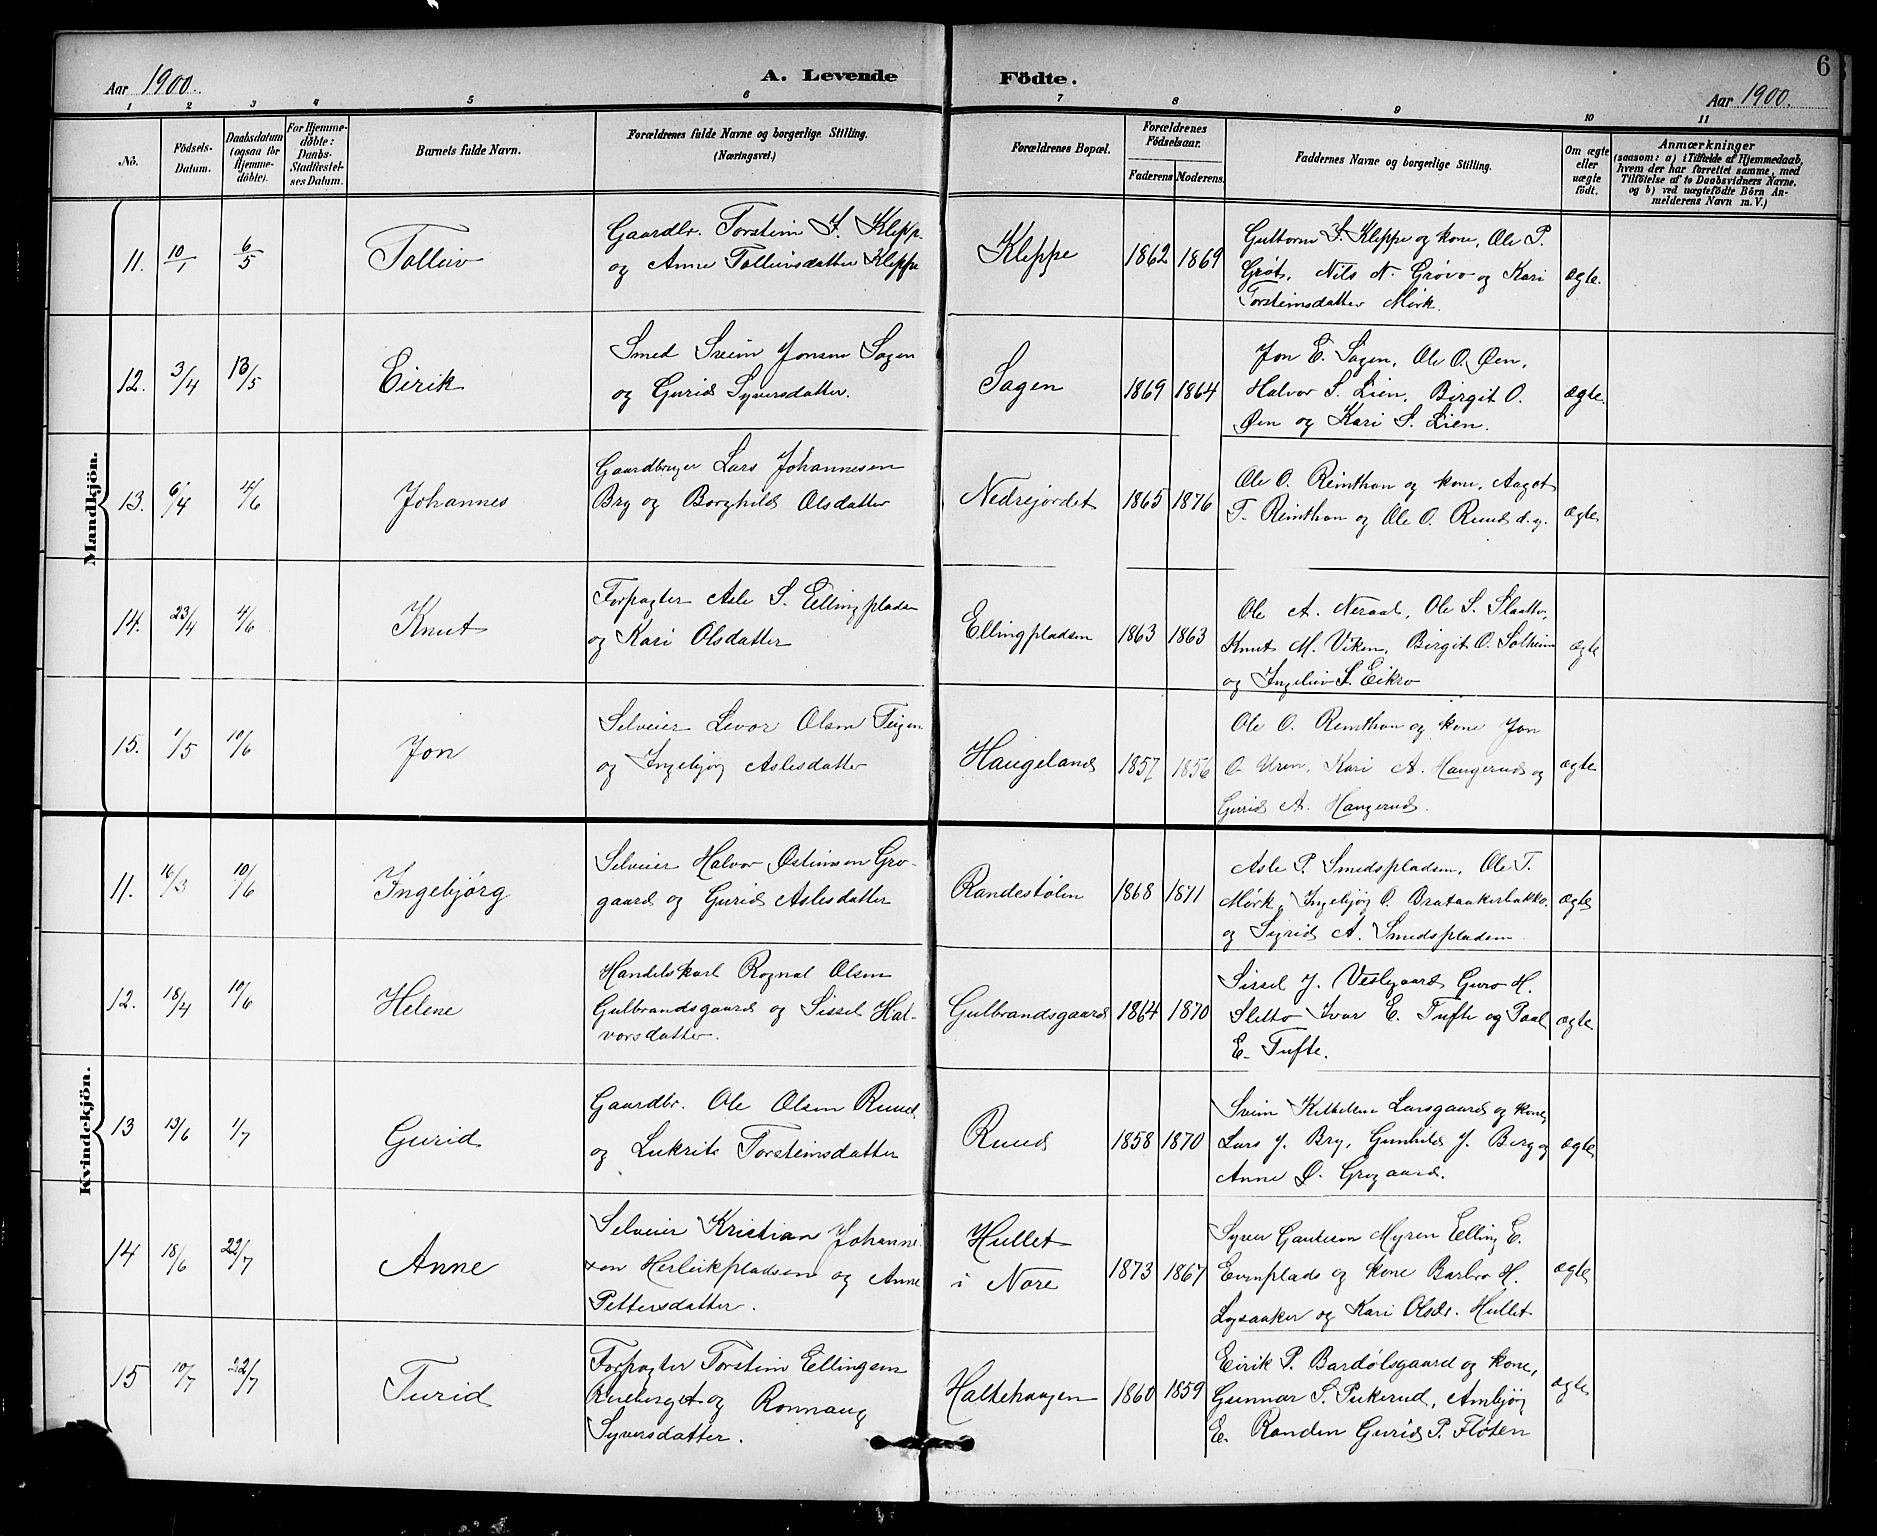 6
Aar 1900.
A. Levende
Födte.
Aar 1900.
1 2 3 4 5 6 7 8 9 10 11
No.
Födsels-Datum.
Daabsdatum (ogsaa for Hjemmedöbte).
For Hjemmedöbte: Daabs-Stadfæstelses Datum.
Barnets fulde Navn.
Forældrenes fulde Navne og borgerlige Stilling.
(Næringsvei.)
Forældrenes Bopæl.
Forældrenes Födselsaar.
Faderens Moderens.
Faddernes Navne og borgerlige Stilling.
Om ægte eller uægte födt.
Anmærkninger
(saasom: a) i Tilfælde af Hjemmedaab,
hvem der har forrettet samme, med
Tilföielse af to Daabsvidners Navne.
og b) ved uægtefödte Börn An-
melderens Navn m. V.)
Mandkjön.
11. 10/1 6/5 Tolleiv
Gaardbr. Torsteim I. Klepp-
og Anne Tolleivsdatter Kleppe
Kleppe 1862 1869
Guttorm I. Kleppe og kone, Ole P.
Grøt, Nils N. Grøvo og Kari
Torsteimsdatter Mørk.
ægte.
12. 3/4 13/5 Eirik
Smed Sveim Jonsen Sagen
og Gurid Syversdatter.
Sagen 1869 1864
Jon E. Sagen, Ole O. Øen,
Halvor S. Lien, Birgit O.
Øen og Kari S. Lien.
ægte.
13. 6/4 4/6 Johannes
Gaardbruger Lars Johannesen
Bry og Borghild Olsdatter
Nedrejordet 1865 1876
Ole O. Reimthon og kone, Aagot
T. Reimthon og Ole O. Ruud d. y.
ægte
14. 23/4 4/6 Knut
Forpagter Asle S. Ellingpladsn
og Kari Olsdatter
Ellingpladsen 1863 1863
Ole A. Neraal, Ole S. Slaatto,
Knut M. Viken, Birgit O. Solheim
og Ingeleiv S. Eikro
ægte
15. 1/5 10/6 Jon
Selveier Levor Olsen Teigen
og Ingebjør Aslesdatter
Haugeland 1857 1856
Ole O. Reimthon og kone Jon
O. Uren, Kari A. Haugerud og
Gurid A. Haugerud.
ægte
Kvindekjön.
11. 16/3 10/6 Ingebjörg
Selveier Halvor Østensen Gro-
gaard og Gurid Aslesdatter
Randestølen 1868 1871
Asle P. Smedspladsen, Ole T.
Mørk, Ingebjør O. Brataakerbakko
og Sigrid A. Smedspladsen
ægte
12. 18/4 10/6 Helene
Handelskarl Rognal Olsen
Gulbrandsgaard og Sissel Hal-
vorsdatter.
Gulbrandsgaard 1864 1870
Sissel J. Veslegaard Guro H.
Sletto Ivar E. Tufte og Paal
E. Tufte.
ægte
13 13/6 1/7 Gurid
Gaardbr. Ole Olsen Ruud
og Lukrits Torsteimsdatter
Ruud 1858 1870
Sveim Larsgaard og kone,
Lars J. Bry, Gunhild J. Berg og
Anne Ø. Grogaard.
ægte
14 18/6 22/7 Anne
Selveier Kristian Johanne-
son Herleikpladsen og Anne
Pettersdatter.
Hullet
i Nore 1873 1867
Syver Gauteson Myren Elling E.
Evenplads og kone Barbro H.
Lysaaker og Kari Olsdr. Hullet
ægte
15 10/7 22/7 Turid
Forpagter Torsteim Ellingsen
Rueberget og Rønnaug
Syversdatter.
Haltehaugen 1860 1859
Eirik P. Bardølsgaard og kone,
Gunnar S. Pukerud, Ambjør
E. Randen Gurid P. Fløten
ægte